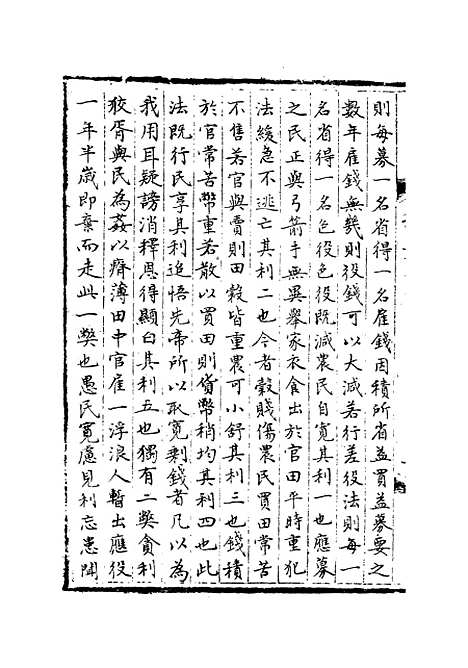 則每募一名省得一名雇錢因積所省益買益募要之
數年雇錢無幾則役錢可以大減若行差役法則每一
名省得一名色役色役既減農民自寬其利一也應募
之民正與弓箭手無異舉家衣食出於官田平時重犯
法緩急不逃亡其利二也今者穀賤傷農民買田常苦
不售若官與賣則田穀皆重農可小舒其利三也錢積
於官常苦幣重若散以買田則貨幣稍均其利四也此
法既行民享其利追悟先帝所以取寬剩錢者凡以為
我用耳疑謗消釋恩得顯白其利五也獨有二弊貪利
狡胥與民為姦以瘠薄田中官雇一浮浪人暫出應役
一年半歲即棄而走此一弊也愚民寬慮見利忘患聞